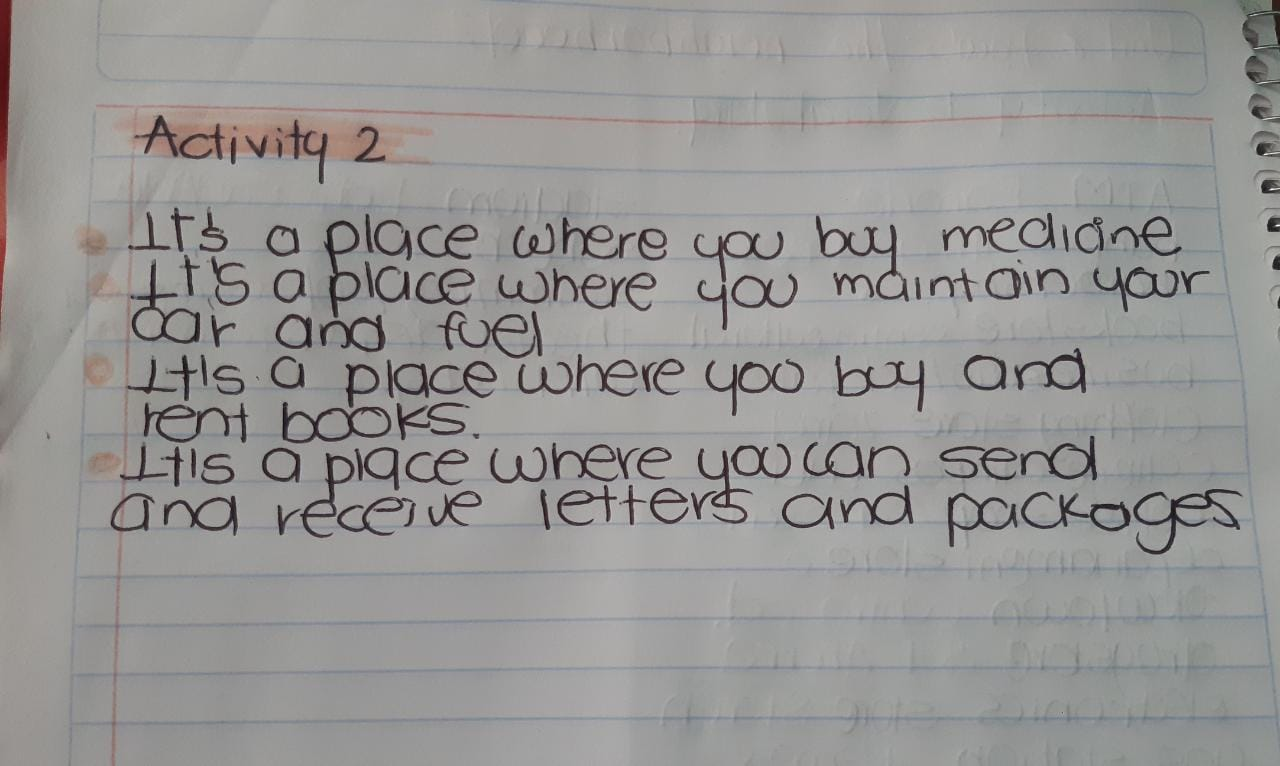 Activity 2
It's a place where you buy medicine
It's a place where you maintain your
car and fuel
It's a place where you buy and
rent books.
It's a place where you can send
and receive letters and packages